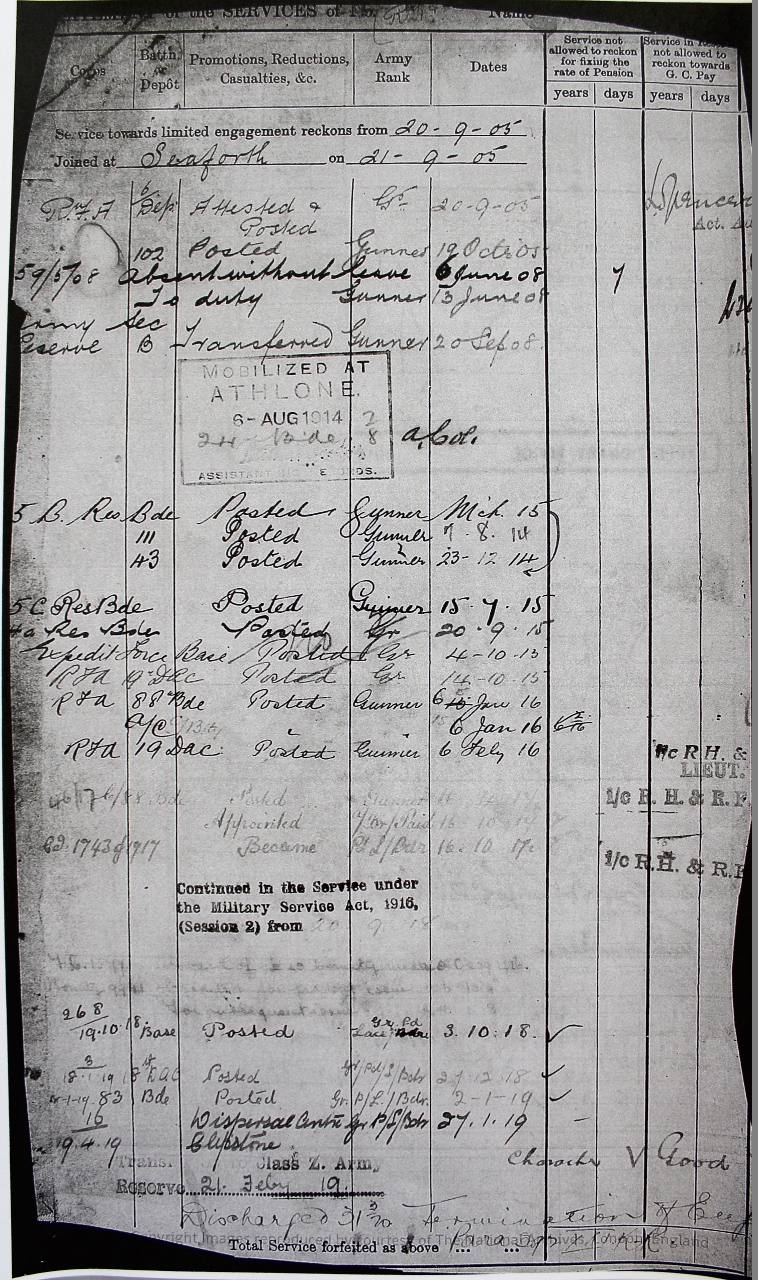 of the SERVICES of No. Name
Corps Battn. or Depôt Promotions, Reductions, Casualties, &c. Army Rank Dates Service not allowed to reckon for fixing the rate of Pension Service in not allowed to reckon towards G. C. Pay
years days years days
Service towards limited engagement reckons from 20-9-05
Joined at Seaforth on 21-9-05
R.F.A 6 Dep Attested & Posted Gr 20-9-05
Spencer
Act.
102 Posted Gunner 19 Oct 05
59/5/08 Absent without leave 6 June 08 7
To duty Gunner 13 June 08
Army Sec
Reserve B Transferred Gunner 20 Sep 08
MOBILIZED AT
ATHLONE.
6-AUG 1914
24 Bde 8
ASSISTANT
5 B. Res Bde Posted Gunner Mch. 15
111 Posted Gunner 7. 8. 14
43 Posted Gunner 23-12 14
5 C Res Bde Posted Gunner 15. 7. 15
4a Res Bde Posted Gr 20. 9. 15
Expedit Force Base Posted Gr 4-10-15
RFA 19 DAC Posted Gr 14-10-15
RFA 88 Bde Posted Gunner 6 Jan 16
A/C 6 Jan 16
RFA 19 DAC Posted Gunner 6 Feby 16
i/c R.H. &
LIEUT.
i/c R. H. & R. F
/88 Bde Posted Gunner 16
Appointed 16 10
1743 of 1917 Became P/L/Bdr 16. 10 17
i/c R.H. & R.F
Continued in the Service under
the Military Service Act, 1916,
(Session 2) from 20 9 18
268
19.10.18. Base Posted Gr. Pd. 3. 10. 18.
3
18.1.19 18 DAC Posted Gr/Pd/L/Bdr 27 12 18
83 Bde Posted Gr. P/L/Bdr. 2-1-19
16
19.4.19 Dispersal Centre Gr P/L/Bdr 27. 1. 19 -
Clipstone
Character V Good
Trans. Class Z. Army
Reserve 21 Feby 19.
Discharged 31 3/20 Termination of
Copyright, Images reproduced by courtesy of The National Archives, London, England
Total Service forfeited as above